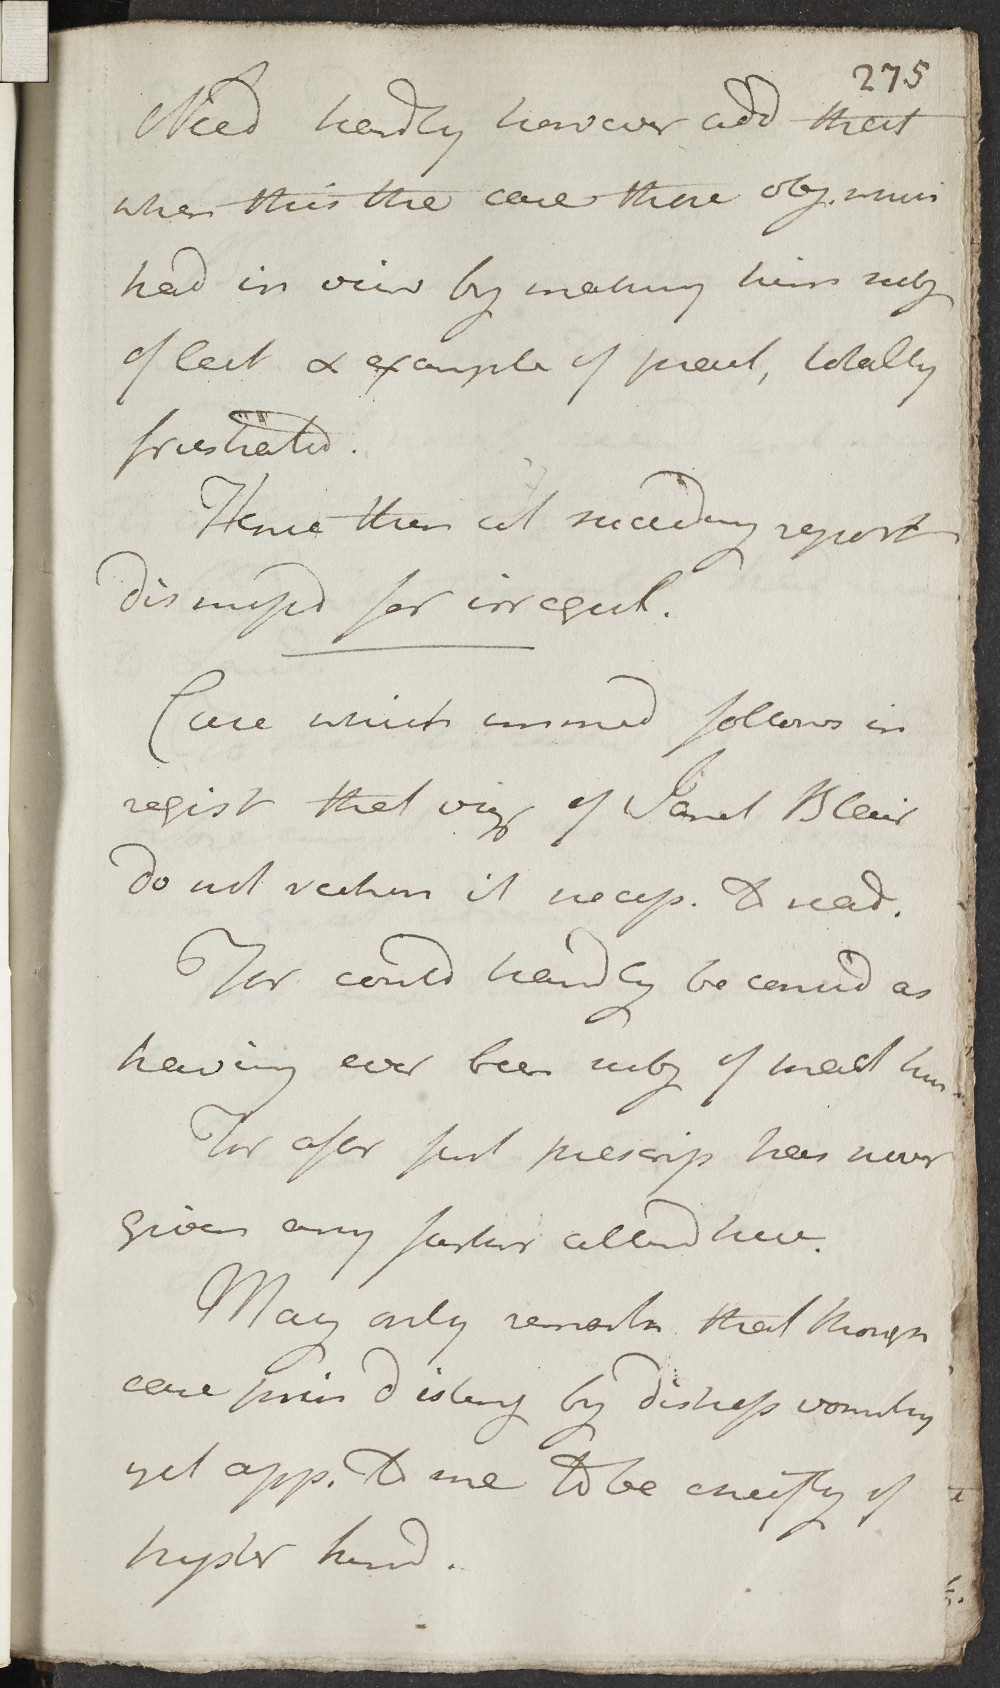 275
Need hardly however add that
when this the case these obj. when
had in view by making him subj
of lect & example of pract, totally
frustrated.
Hence then all succeeding reports
dismissed for irregul.
Case which immed follows in
regist that viz of Janet Blair
do not reckon it necess. to read.
For could hardly be consid as
having ever been subj of med her
For after first prescrip has never
given any farther attend here.
May only remark that though
case princ disting by distress vomiting
yet app. to me to be chiefly of
hyster kind.